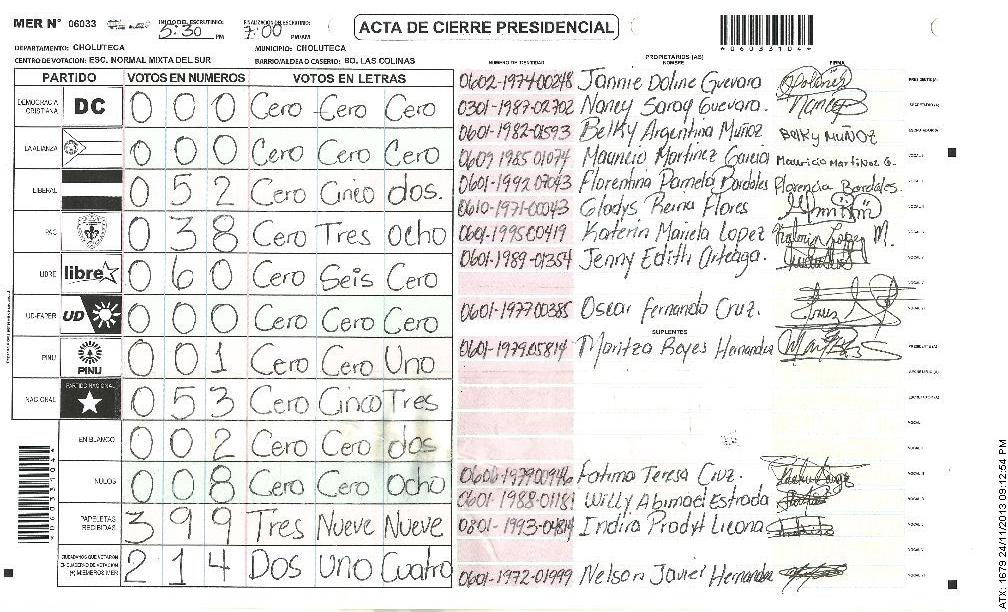 MER N° 06033 INICIO DEL ESCRUTINIO: 5:30 PM FINALIZACION DE ESCRUTINIO: 7:00 PM/AM
ACTA DE CIERRE PRESIDENCIAL
*0603310 4*
DEPARTAMENTO: CHOLUTECA MUNICIPIO: CHOLUTECA
CENTRO DE VOTACION: ESC. NORMAL MIXTA DEL SUR BARRIO/ALDEA O CASERIO: BO. LAS COLINAS
PARTIDO VOTOS EN NUMEROS VOTOS EN LETRAS
DEMOCRACIA CRISTIANA DC 0 0 0 Cero Cero Cero
LA ALIANZA 0 0 0 Cero Cero Cero
LIBERAL 0 5 2 Cero Cinco dos.
PAC 0 3 8 Cero Tres Ocho
LIBRE libre 0 6 0 Cero Seis Cero
UD-FAPER UD 0 0 0 Cero Cero Cero
PINU PINU 0 0 1 Cero Cero Uno
NACIONAL PARTIDO NACIONAL 0 5 3 Cero Cinco Tres
EN BLANCO 0 0 2 Cero Cero dos
NULOS 0 0 8 Cero Cero Ocho
PAPELETAS RECIBIDAS 3 9 9 Tres Nueve Nueve
CIUDADANOS QUE VOTARON EN CUADERNO DE VOTACION (+) MIEMBROS MER 2 1 4 Dos uno Cuatro
NUMERO DE IDENTIDAD PROPIETARIOS (AS) NOMBRE FIRMA
0602-1974-00248 Jannie Doline Guevara PRESIDENTE (A)
0301-1987-02702 Nancy Saray Guevara. SECRETARIO (A)
0601-1982-01593 Belky Argentina Muñoz Belky Muñoz
0609 1985 01074 Mauricio Martinez Garcia Mauricio Martinez G.
0601-1992 07043 Florentina Pamela Bordales Florencia Bordales.
0610-1971-00043 Gladys Reina Flores
0601-1995 00419 Katerin Mariela Lopez
0601-1989-01354 Jenny Edith Arteaga.
0601-1977 00385 Oscar Fernando Cruz.
SUPLENTES
0601-1979.05814 Maritza Reyes Hernandez PRESIDENTE (A)
Fatima Teresa Cruz.
0601-1988-01181 Willy Abimael Estrada
Indira Prodyt Licona
0601-1972-01999 Nelson Javier Hernandez
ATX: 1679 24/11/2013 09:12:54 PM